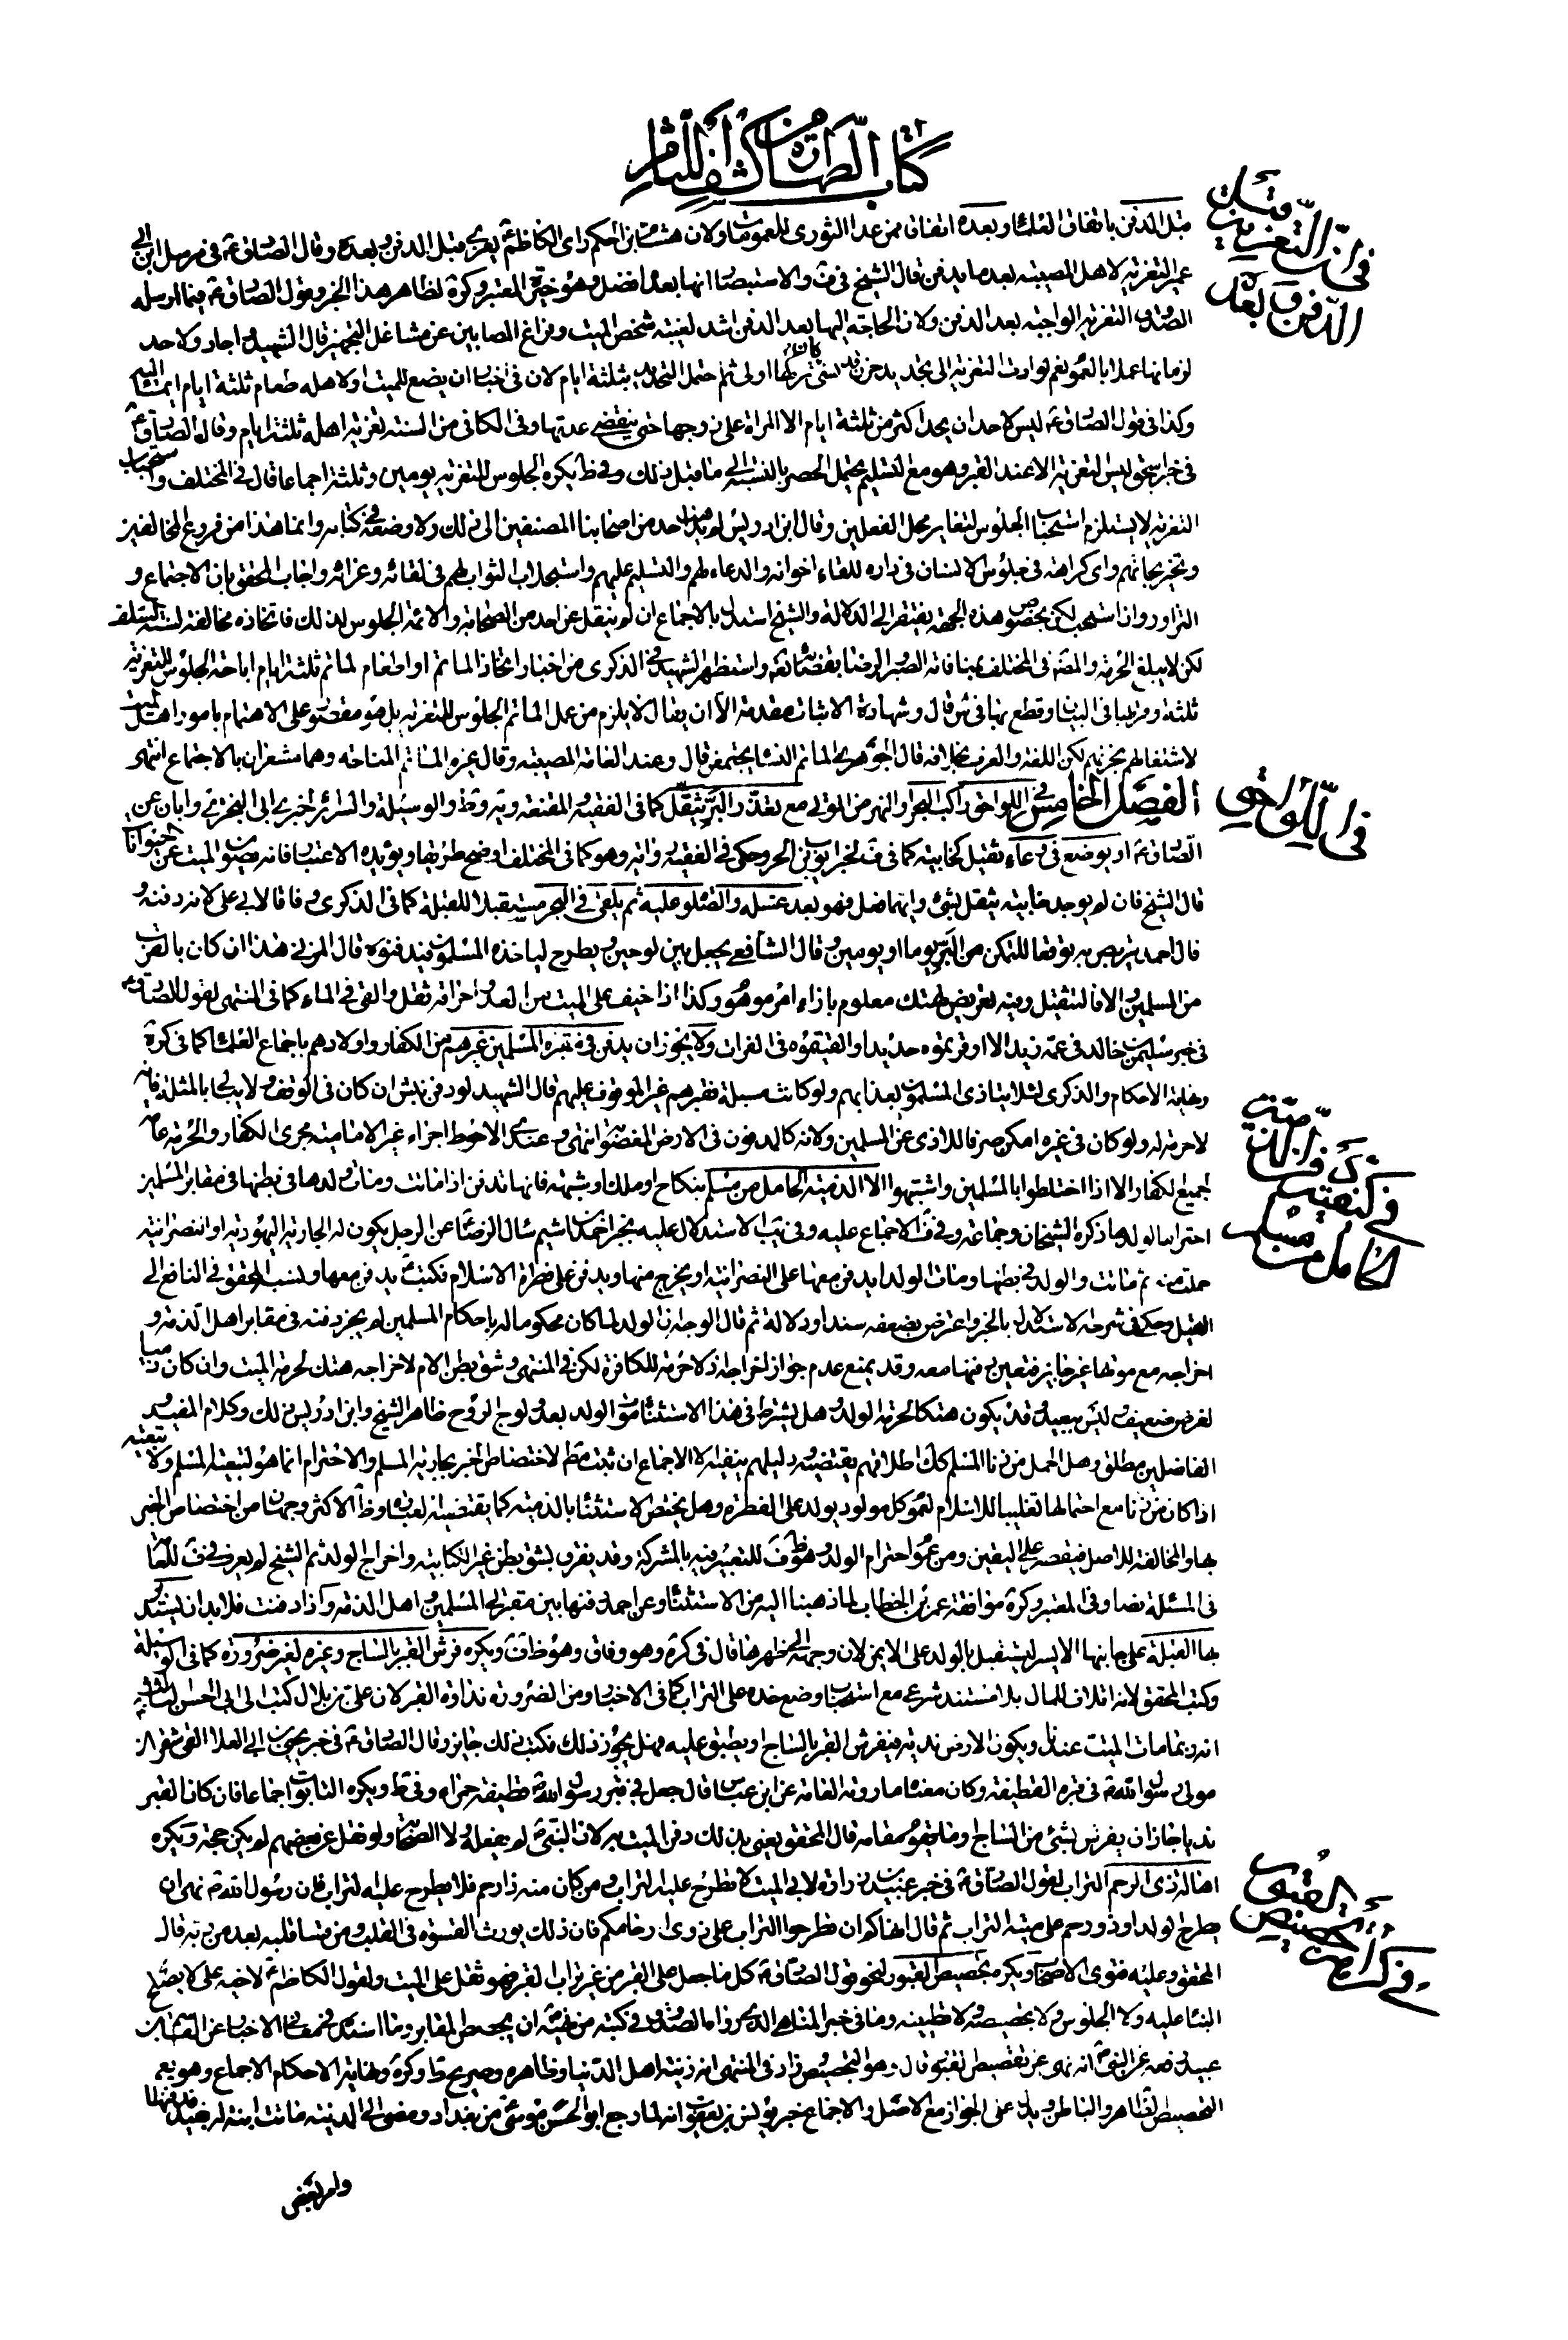 كتاب الطهارة من كشف اللثام
في ان التعزية قبل
الدفن وبعده
قبل الدفن باتفاق العلماء وبعده اتفاق ممن عدا الثوري للعمومات ولان هشام بن الحكم راى الكاظم ع يعزي قبل الدفن وبعده وقال الصادق ع في مرسل ابن ابي
عمير التعزية لاهل المصيبة بعد ما يدفن قال الشيخ في ف والاستبصار انها بعده افضل وهو خيرة المعتبر وكرة لظاهر هذا الخبر وقول الصادق ع فيما ارسله
الصدوق التعزية الواجبة بعد الدفن ولان الحاجة اليها بعد الدفن اشد لغيبة شخص الميت وفراغ المصابين عن مشاغل التجهيز قال الشهيد واجاد ولا حد
لزمانها عملا بالعموم نعم لو ادت التعزية الى تجديد حزن قد نسى كان تركها اولى ثم احتمل التحديد بثلثة ايام لان في اخبار ان يصنع للميت ولاهله طعام ثلثة ايام ايماء اليه
وكذا في قول الصادق ع ليس لاحد ان يحد اكثر من ثلثة ايام الا المراة على زوجها حتى ينقضي عدتها وفي الكافي من السنة تعزية اهله ثلثة ايام وقال الصادق ع
في خبر اسحق ليس التعزية الا عند القبر وهو مع التسليم يحتمل الحصر بالنسبة الى ما قبل ذلك وفي ط يكره الجلوس للتعزية يومين وثلثة اجماعا قال في المختلف واستحباب
التعزية لا يستلزم استحباب الجلوس لتغاير محل الفعلين وقال ابن ادريس لم يذهب احد من اصحابنا المصنفين الى ذلك ولا وضعه في كتابه وانما هذا من فروع المخالفين
وتخريجاتهم واى كراهة في جلوس الانسان في داره للقاء اخوانه والدعاء لهم والتسليم عليهم واستجلاب الثواب لهم في لقائه وعزائه واجاب المحقق بان الاجتماع و
التزاور وان استحب لكن بخصوص هذه الجهة يفتقر الى الدلالة والشيخ استدل بالاجماع ان لم ينقل عن احد من الصحابة والائمة الجلوس لذلك فاتخاذه مخالفة لسنة السلف
لكن لا يبلغ الحرمة والمضي في المختلف بمنافاته الصبر والرضا بقضائه تع واستظهر الشهيد في الذكرى من اخبار اتخاذ الماتم او اطعام الماتم ثلثة ايام اباحة الجلوس للتعزية
ثلثة وقربها في البيان وقطع بها في س قال وشهادة الاثبات مقدمة الا ان يقال لا يلزم من عمل الماتم الجلوس للتعزية بل هو مقصور على الاهتمام بامور اهل الميت
لاشتغالهم بحزنهم لكن اللغة والعرف بخلافه قال الجوهري الماتم النساء يجتمعن قال وعند العامة المصيبة وقال غيره الماتم المناحة وهما مشعران بالاجتماع انتهى
في اللواحق
الفصل الخامس في اللواحق راكب البحر والنهر من الموتى مع تعذر البر يثقل كما في الفقيه المقنعة وية وط والوسيلة والسرائر لخبري ابي البختري وابان عن
الصادق ع او يوضع في وعاء ثقيل كخابية كما في ف لخبر ايوب بن الحر وحكى في الفقيه وية وهو كما في المختلف اوضح طريقا ويؤيده الاعتبار فانه يصون الميت عن الحيوانات
قال الشيخ فان لم يوجد خابية يثقل بشئ وايهما فعل فهو بعد غسله والصلوة عليه ثم يلقى في البحر مستقبلا للقبلة كما في الذكرى وفاقا لابي علي لانه دفنه و
قال احمد يتربص به توقعا للتمكن من البر يوما او يومين وقال الشافعي يجعل بين لوحين ويطرح لياخذه المسلمون فيدفنوه قال المزني هذا ان كان بالقرب
من المسلمين والا فالتثقيل وفيه تعريض لهتك معلوم بازاء امر موهوم وكذا اذا خيف على الميت من العدو احراقه ثقل والقي في الماء كما في المنتهى لقول الصادق ع
في خبر سليمن بن خالد في عمه زيد الا اوقرتموه حديدا والقيتموه في الفرات ولا يجوز ان يدفن في مقبرة المسلمين غيرهم من الكفار واولادهم باجماع العلماء كما في كرة
ونهاية الاحكام والذكرى لئلا يتاذى المسلمون بعذابهم ولو كانت مسبلة فقبرهم غير الموقوف عليهم قال الشهيد لو دفن نبش ان كان في الوقف ولا يبالى بالمثلة فانه
لا حرمة له ولو كان في غيره امكن صرفا للاذى عن المسلمين ولانه كالمدفون في الارض المغصوبة انتهى وعندي الاحوط اجراء غير الامامية مجرى الكفار والحرمة عامة
لجميع الكفار الا اذا اختلطوا بالمسلمين واشتبهوا الا الذمية الحامل من مسلم بنكاح او ملك او شبهة فانها تدفن اذا ماتت ومات ولدها في بطنها في مقابر المسلمين
في ان الذمية
في كيفية دفن
الحامل من مسلم
احتراما لولدها ذكره الشيخان وجماعة وفي ف الاجماع عليه وفي يب الاستدلال عليه بخبر احمد بن اشيم سال الرضا ع عن الرجل يكون له الجارية اليهودية او النصرانية
حملت منه ثم ماتت والولد في بطنها ومات الولد ايدفن معها على النصرانية او يخرج منها ويدفن على فطرة الاسلام فكتب ع يدفن معها ونسبه المحقق في النافع الى
القيل وحكى في شرحه الاستدلال بالخبر واعترض بضعفه سندا ودلالة ثم قال الوجه ان الولد لما كان محكوما له باحكام المسلمين لم يجز دفنه في مقابر اهل الذمة و
اخراجه مع موتها غير جايز فتعين دفنها معه وقد يمنع عدم جواز اخراجه اذ لا حرمة للكافرة لكن في المنتهى وشق بطن الام لاخراجه هتك لحرمة الميت وان كان ذميا
لغرض ضعيف ليس ببعيد وقد يكون هتكا لحرمة الولد وهل يشترط في هذا الاستثناء موت الولد بعد ولوج الروح ظاهر الشيخ وابن ادريس ذلك وكلام المفيد و
الفاضلين مطلق وهل الحمل من زنا المسلم كك اطلاقهم يقتضيه ودليلهم ينفيه الا الاجماع ان ثبت مط لاختصاص الخبر بجارية المسلم والاحترام انما هو لتبعيته المسلم ولا تبعية
اذا كان من زنا مع احتمالها تغليبا للاسلام لعموم كل مولود يولد على الفطرة وهل يختص الاستثناء بالذمية كما يقتضيه العبارة وظ الاكثر وجهان من اختصاص الخبر
بها والمخالفة للاصل فيقصر على اليقين ومن عموم احترام الولد وهو ظ ف للتعبير فيه بالمشركة وقد يفرق بشق بطن غير الكتابية واخراج الولد ثم الشيخ لم يعرف في ف للعامة
في المسئلة نصا وفي المعتبر وكرة موافقة عمر بن الخطاب لما ذهبنا اليه من الاستثناء وعن احمد دفنها بين مقبرتي المسلمين واهل الذمة واذا دفنت فلا بد ان يستدبر
بها القبلة على جانبها الايسر ليستقبل بالولد على الايمن لان وجهه الى ظهرها قال في كرة وهو وفاق وهو ظ ف ويكره فرش القبر بالساج وغيره لغير ضرورة كما في الوسيلة
وكتب المحقق لانه اتلاف للمال بلا مستند شرعي مع استحباب وضع خده على التراب كما في الاخبار ومن الضرورة نداوة القبر لان علي بن بلال كتب الى ابي الحسن الثالث ع
انه ربما مات الميت عندنا ويكون الارض ندية فيفرش القبر بالساج او يطبق عليه فهل يجوز ذلك فكتب ذلك جايز وقال الصادق ع في خبر يحيى بن ابي العلا القى شقران
مولى رسول الله ص في قبره القطيفة وكان معناه ما روته العامة عن ابن عباس قال جعل في قبر رسول الله ص قطيفة حمراء وفي ط ويكره التابوت اجماعا فان كان القبر
نديا جاز ان يفرش بشئ من الساج او ما يقوم مقامه قال المحقق يعني بذلك دفن الميت به لان النبي ص لم يفعله ولا الصحابة ولو نقل عن بعضهم لم يكن حجة ويكره
اهالة ذي الرحم التراب لقول الصادق ع في خبر عبيد بن زرارة لابي الميت لا تطرح عليه التراب ومن كان منه ذا رحم فلا يطرح عليه التراب فان رسول الله ص نهى ان
يطرح الوالد او ذو رحم على ميته التراب ثم قال انهاكم ان تطرحوا التراب على ذوي ارحامكم فان ذلك يورث القسوة في القلب ومن قسا قلبه بعد من ربه قال
في كراهة
تجصيص
القبور
المحقق وعليه فتوى الاصحاب ويكره تجصيص القبور لنحو قول الصادق ع كل ما جعل على القبر من غير تراب القبر فهو ثقل على الميت ولقول الكاظم ع لاخيه علي لا يصلح
البناء عليه ولا الجلوس ولا تجصيصه ولا تطيينه وما في خبر المناهي الذي رواه الصدوق في كتبه من نهيه ص ان يجصص المقابر وما اسنده في معاني الاخبار عن القاسم بن
عبيد رفعه عن النبي ص انه نهى عن تقصيص القبور قال وهو التجصيص وزاد في المنتهى انه زينة اهل الدنيا وظاهره وصريح ط وكرة ونهاية الاحكام الاجماع وهو يعم
التجصيص الظاهر والباطن ويدل على الجواز مع الاصل والاجماع خبر يونس بن يعقوب انه لما رجع ابو الحسن موسى ع من بغداد ومضى الى المدينة ماتت ابنة له بفيد فدفنها
وامر بعض